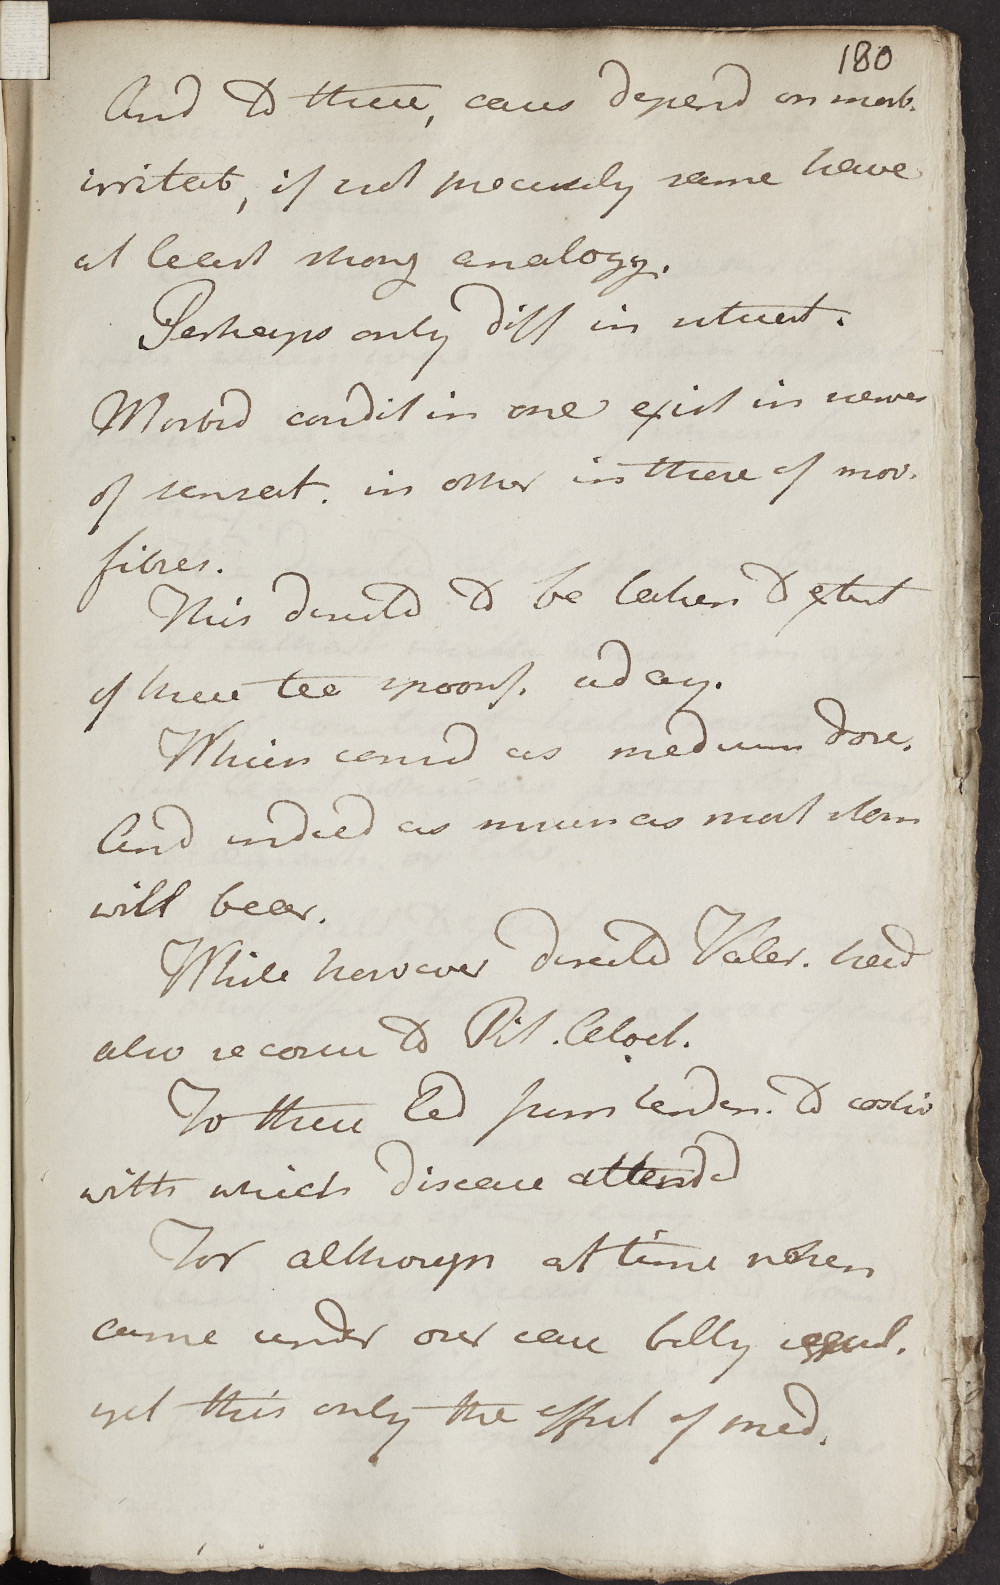 180
And to these, cases depend on morb.
irritat, if not precisely same have
at least strong analogy.
Perhaps only diff in situat.
Morbid condit in one exist in nerves
of sensat. in other in these of mov.
fibres.
This directd to be taken to extent
of three tea spoonf. a day.
Which consid as medium dose.
And indeed as much as most stom
will bear.
While however directd Valer. had
also recour to Pil. Aloet.
To these led from tenden. to costiv
with which disease attendd
For although at time when
came under our care belly regul.
yet this only the effect of med.